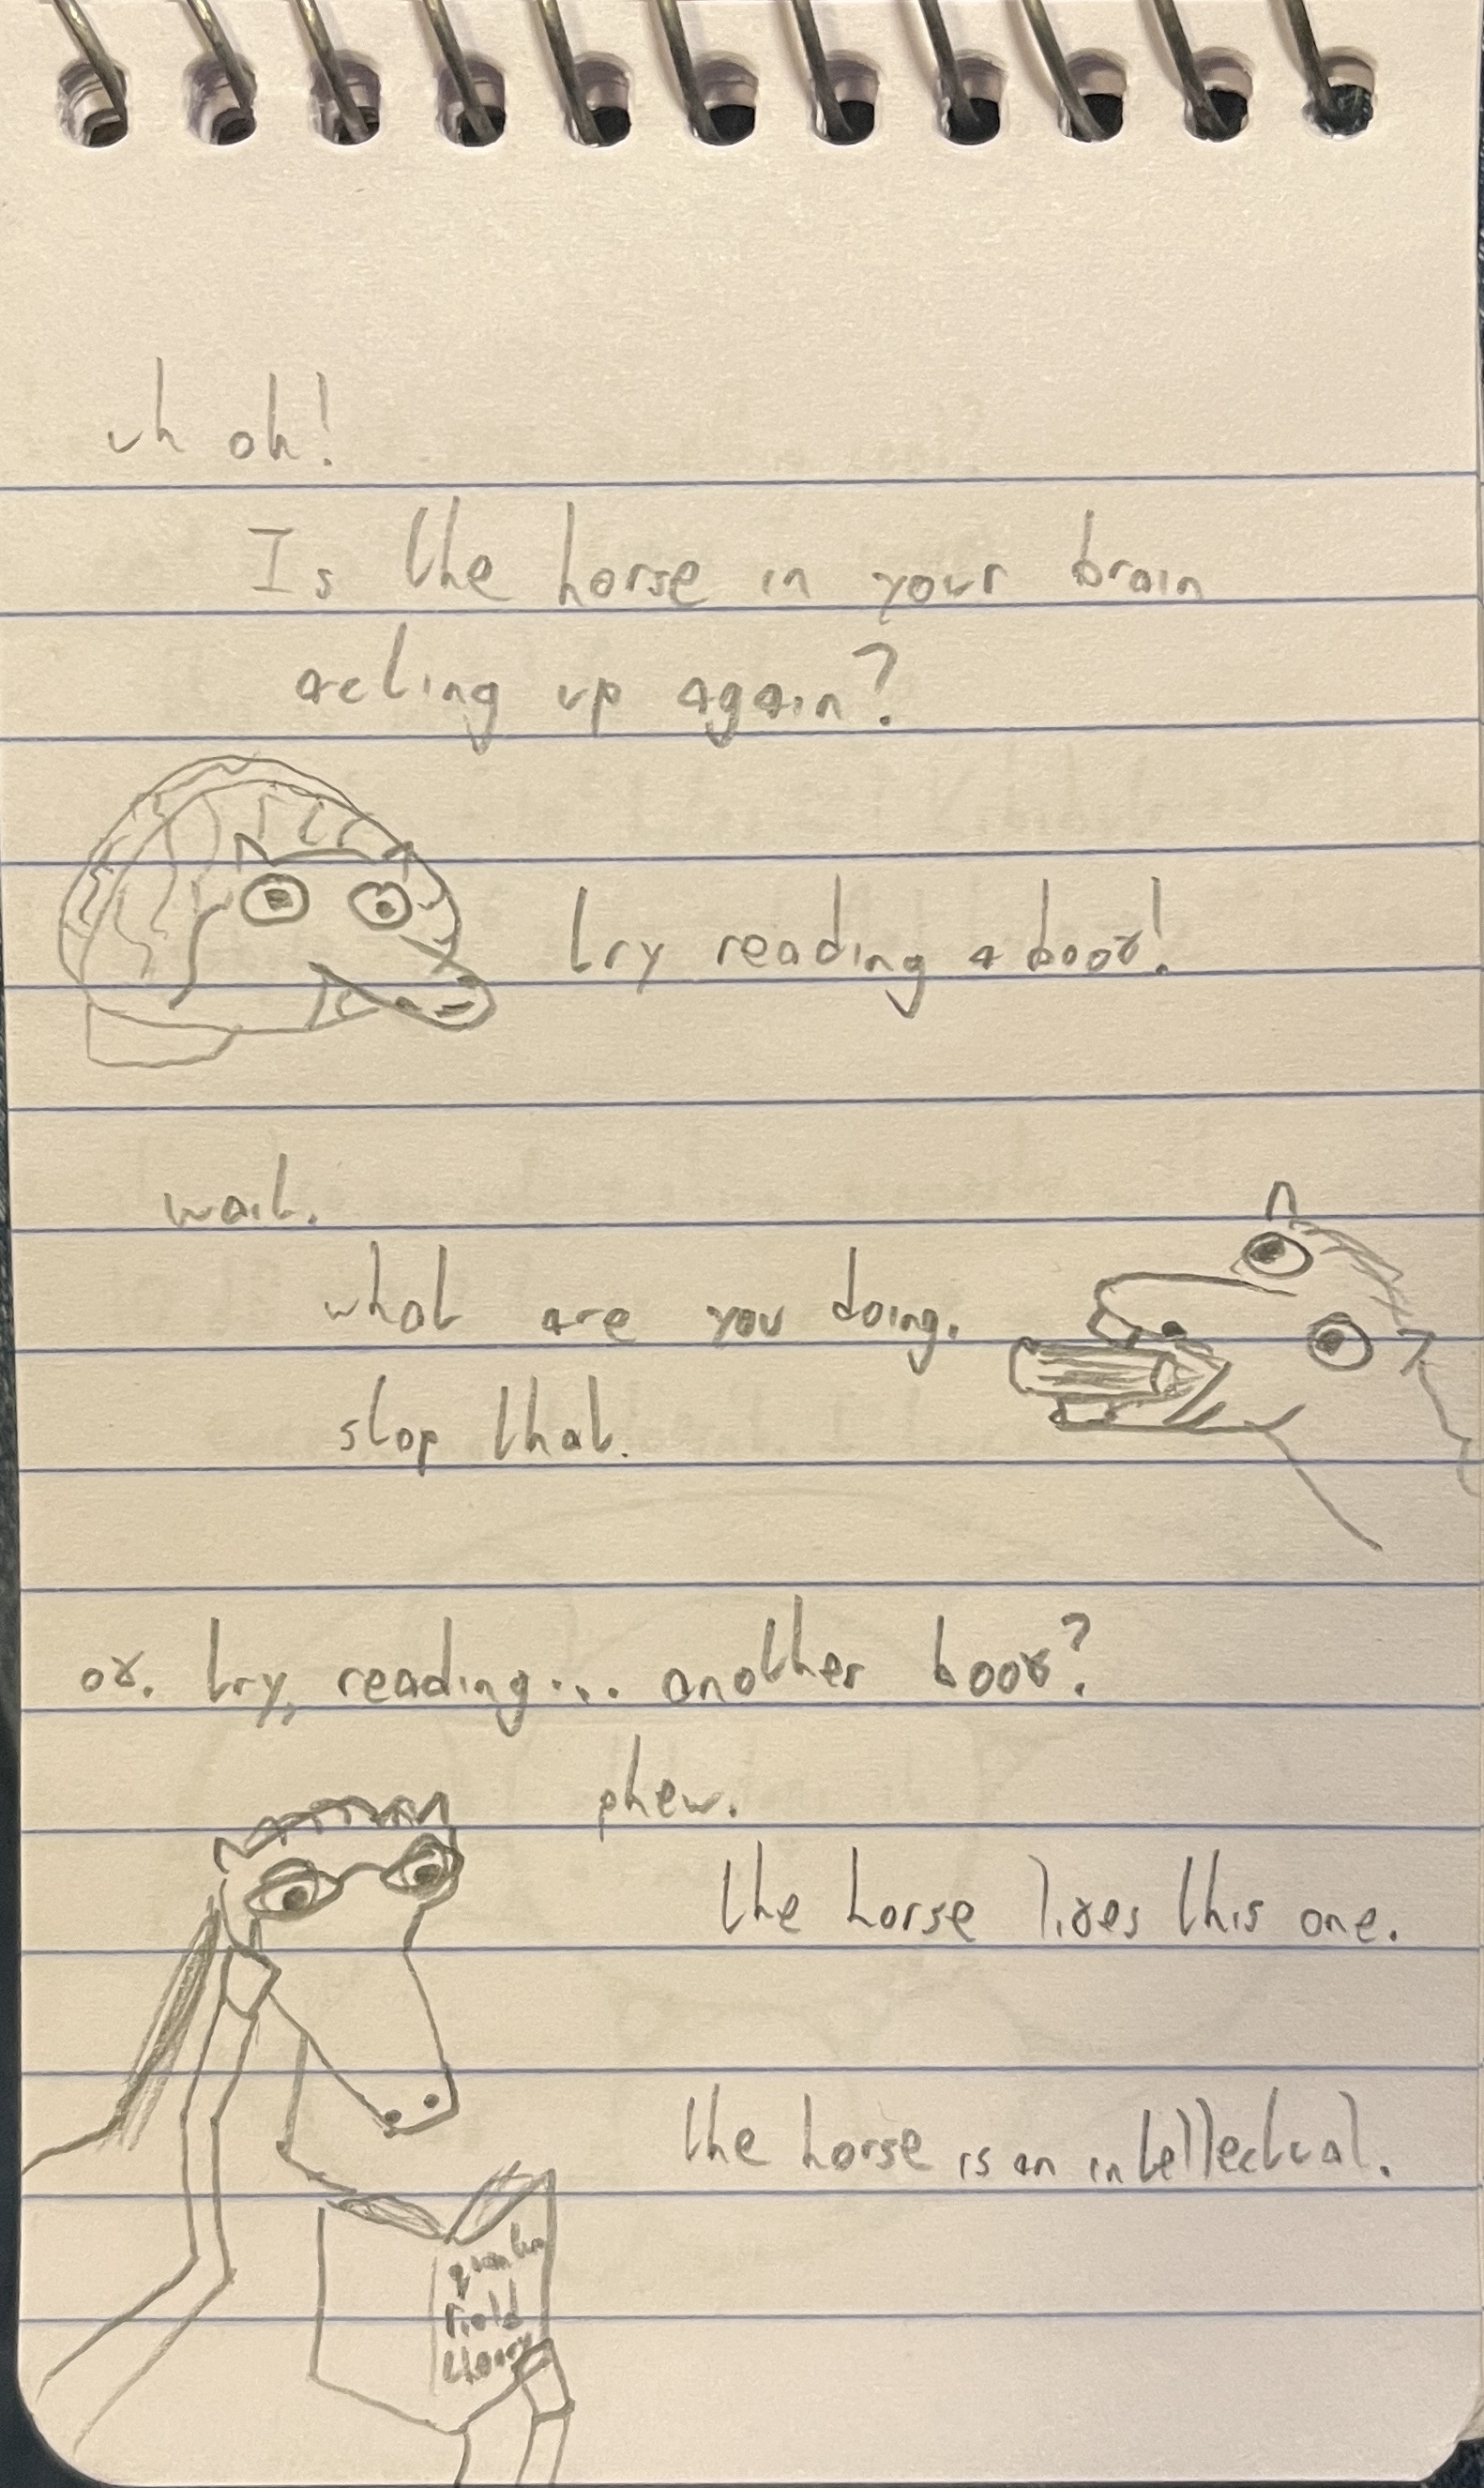 uh oh!
Is the horse in your brain
acting up again?
try reading a book!
wait.
what are you doing.
stop that.
ok. try, reading... another book?
phew.
the horse likes this one.
the horse is an intellectual.
quantum
field
theory